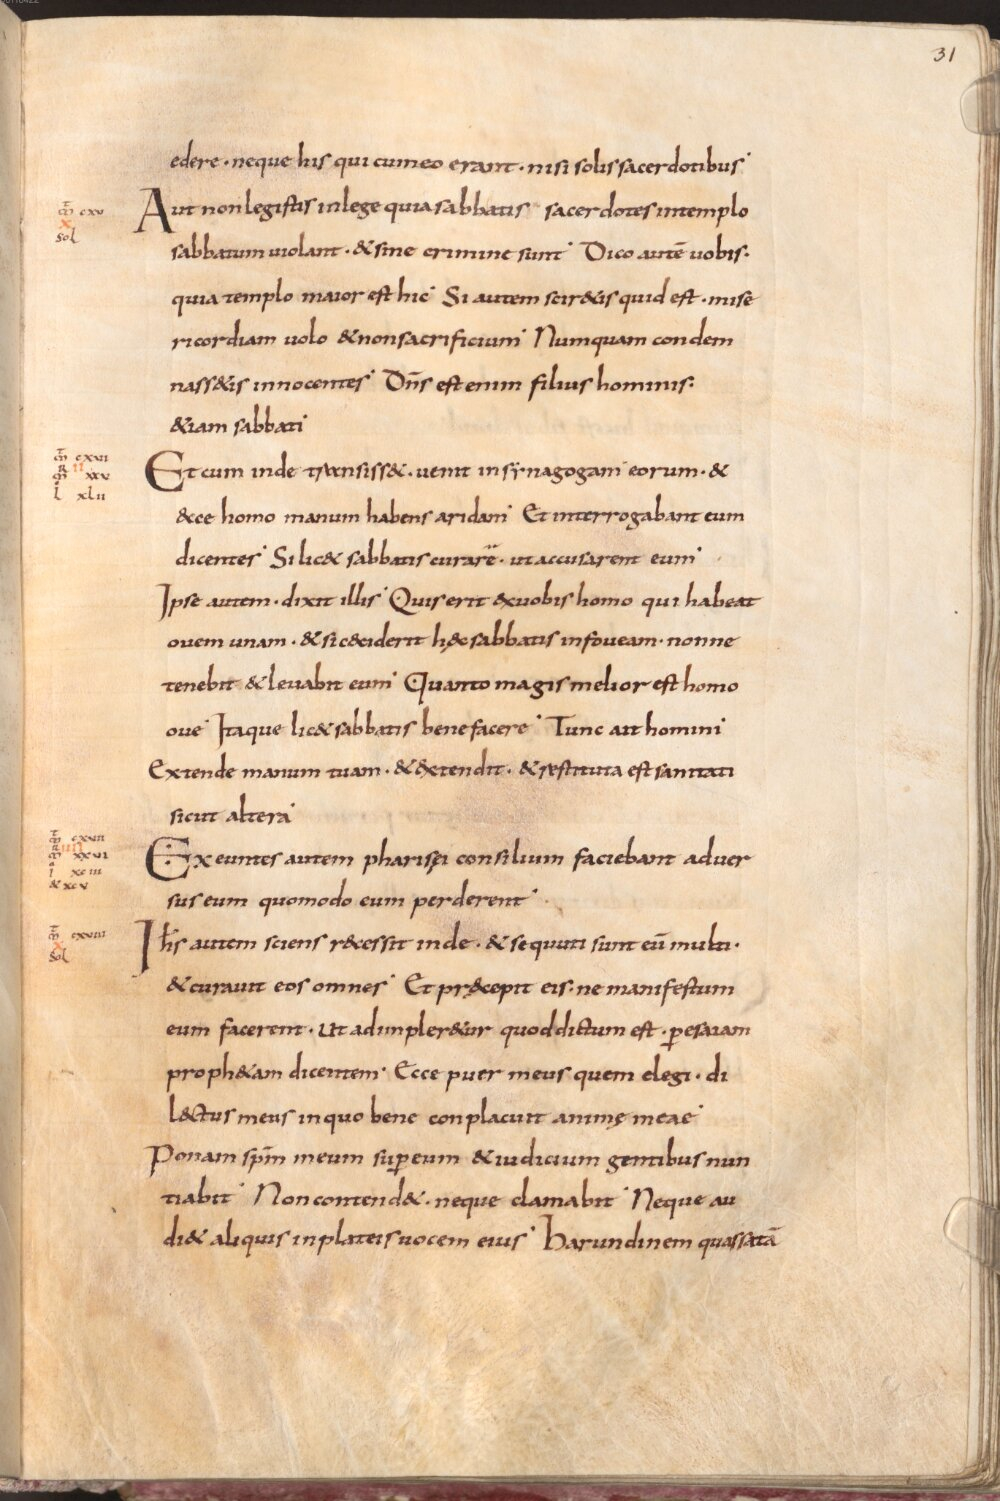 31
edere · neque his qui cumeo erant · nisi solis sacerdotibus
Aut nonlegistis inlege quia sabbatis sacerdotes intemplo
m̄ cxv
x
sol
sabbatum uiolant · & sine crimine sunt Dico autē uobis ·
quia templo maior est hic Si autem scir&is quid est · mise
ricordiam uolo & nonsacrificium Numquam condem
nass&is innocentes Dn̄s est enim filius hominis ·
&iam sabbati
m̄ cxvi
m̄ xxv
l xlii
Et cum inde transiss& · uenit insynagogam eorum · &
&ce homo manum habens aridam Et interrogabant eum
dicentes Si lic& sabbatis curarē · ut accusarent eum
Ipse autem · dixit illis Quis erit exuobis homo qui habeat
ouem unam · & si ceciderit hęc sabbatis infoueam · nonne
tenebit & leuabit eum Quanto magis melior est homo
oue Itaque lic& sabbatis benefacere Tunc ait homini
Extende manum tuam · & extendit · & restituta est sanitati
sicut altera
m̄ cxvii
m̄ xxvi
l xciii
& xcv
Exeuntes autem pharisęi consilium faciebant aduer
sus eum quomodo eum perderent
m̄ cxviii
x
sol
Ihs autem sciens recessit inde · & sequuti sunt eū multi ·
& curauit eos omnes Et pręcepit eis · ne manifestum
eum facerent · Ut adimpler&ur quod dictum est · p̲ esaiam
proph&am dicentem Ecce puer meus quem elegi · di
lectus meus inquo bene conplacuit animę meae
Ponam spm̄ meum sup̲ eum & iudicium gentibus nun
tiabit Non contend& · neque clamabit Neque au
di& aliquis inplateis uocem eius Harundinem quassatā